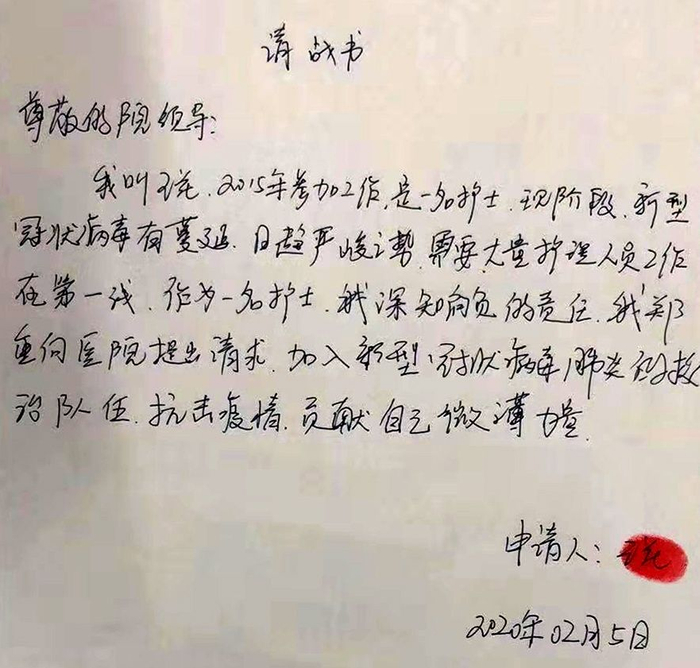 请战书
尊敬的院领导:
我叫王 . 2015年参加工作,是一名护士.现阶段.新型
冠状病毒有蔓延.日趋严峻之势.需要大量护理人员工作
在第一线.作为一名护士.我深知肩负的责任.我郑
重向医院提出请求.加入新型冠状病毒肺炎的救
治队伍.抗击疫情.贡献自己微薄力量.
申请人: 王
2020年02月5日